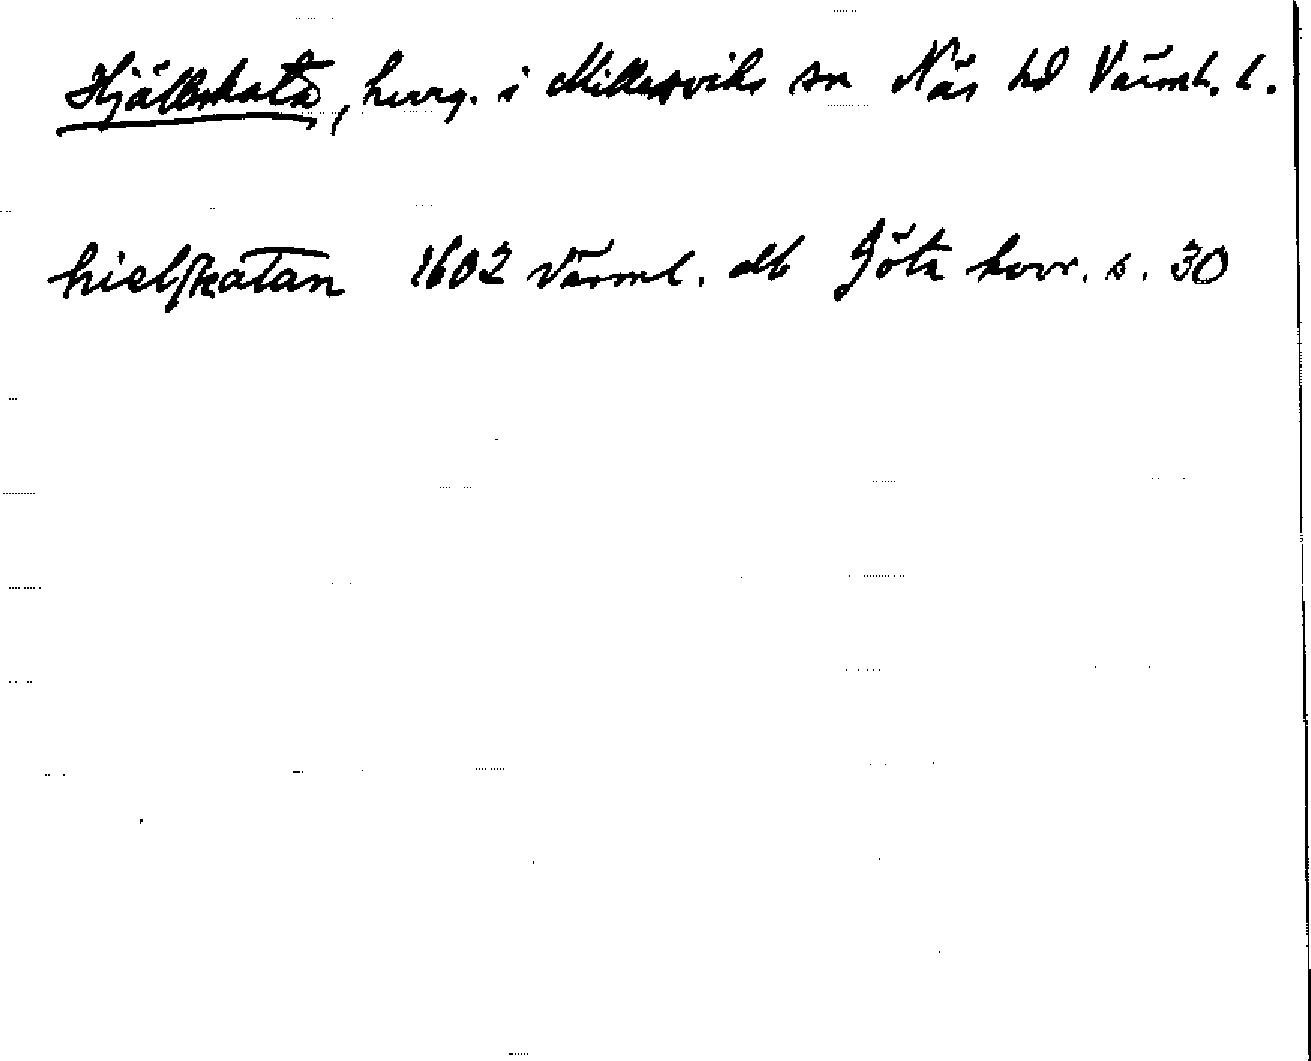 Hjällskata, herrg. i Millesviks sn Näs hd Värml. l.
hielskatan 1602 Värml. db Göta hovr. s. 30